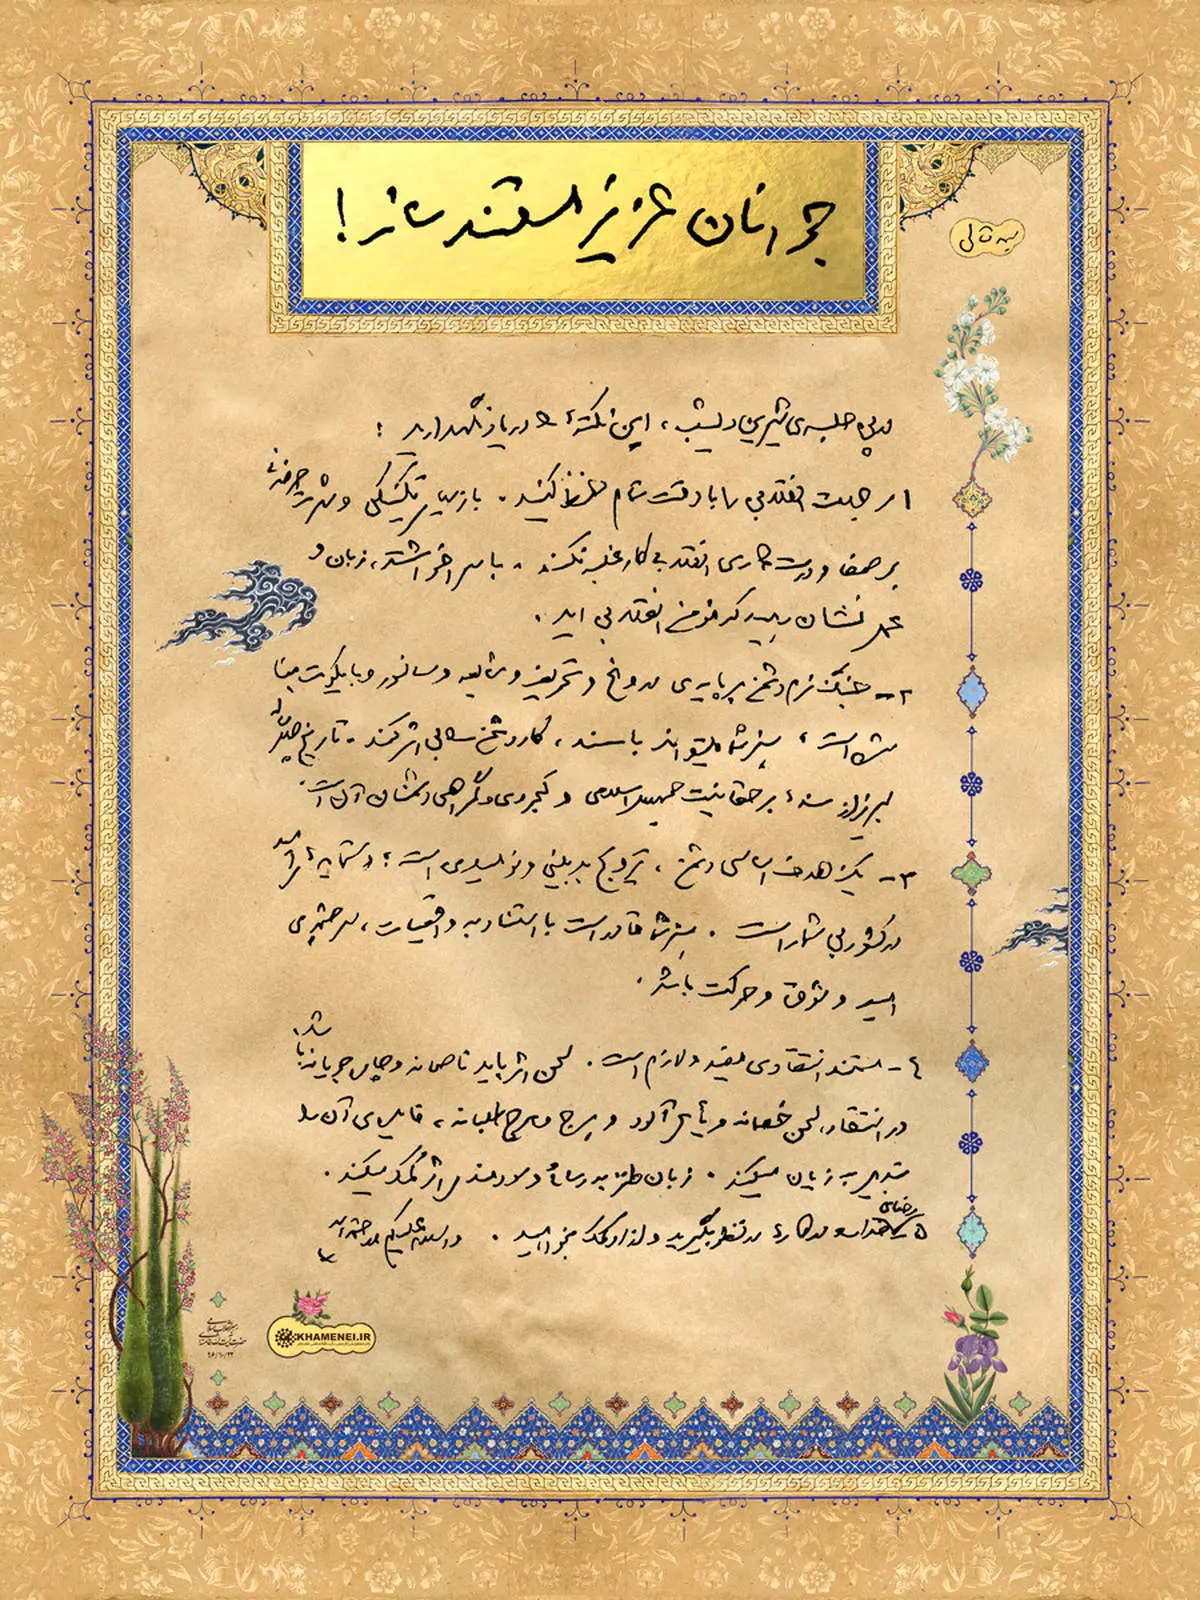 بسمه تعالی
جوانان عزیز مستندساز!
در پی جلسه‌ی شیرین دیشب، این نکته‌ها را در یاد نگهدارید:
۱ـ جهت انقلابی را با دقت تمام حفظ کنید. بازیهای تکنیکی و شهرت حرفه‌ئی
بر صفا و درست‌کاری انقلابی کار غلبه نکند. با سرافراشته، زبان و
عمل نشان بدهید که مؤمن انقلابی‌اید.
۲ـ جنگ نرم دشمن بر پایه‌ی دروغ و تحریف و شایعه و سانسور و بایکوت بنا
شده است، هنر شما میتواند با سند، کار دشمن را بی‌اثر کند. تاریخ چهل ساله
لبریز از سندها بر حقانیت جمهوری اسلامی و کجروی و گمراهی دشمنان آن است.
۳ـ یک هدف اساسی دشمن، ترویج بدبینی و نومیدی است؛ دستمایه‌های امید
در کشور بی‌شمار است. هنر شما قادر است با استناد به واقعیات، سرچشمه‌ی
امید و شوق و حرکت باشد.
۴ـ مستند انتقادی مفید و لازم است. لحن اثر باید ناصحانه و چاره‌جویانه باشد.
در انتقاد، لحن خصمانه و یأس‌آلود و هرج و مرج طلبانه، فایده‌ی آن را
تبدیل به زیان میکند. زبان طنز به رسائی و سودمندی اثر کمک میکند.
۵ـ رضای خدا را در همه کارها در نظر بگیرید و از او کمک بخواهید. والسلام علیکم و رحمة‌الله
KHAMENEI.IR